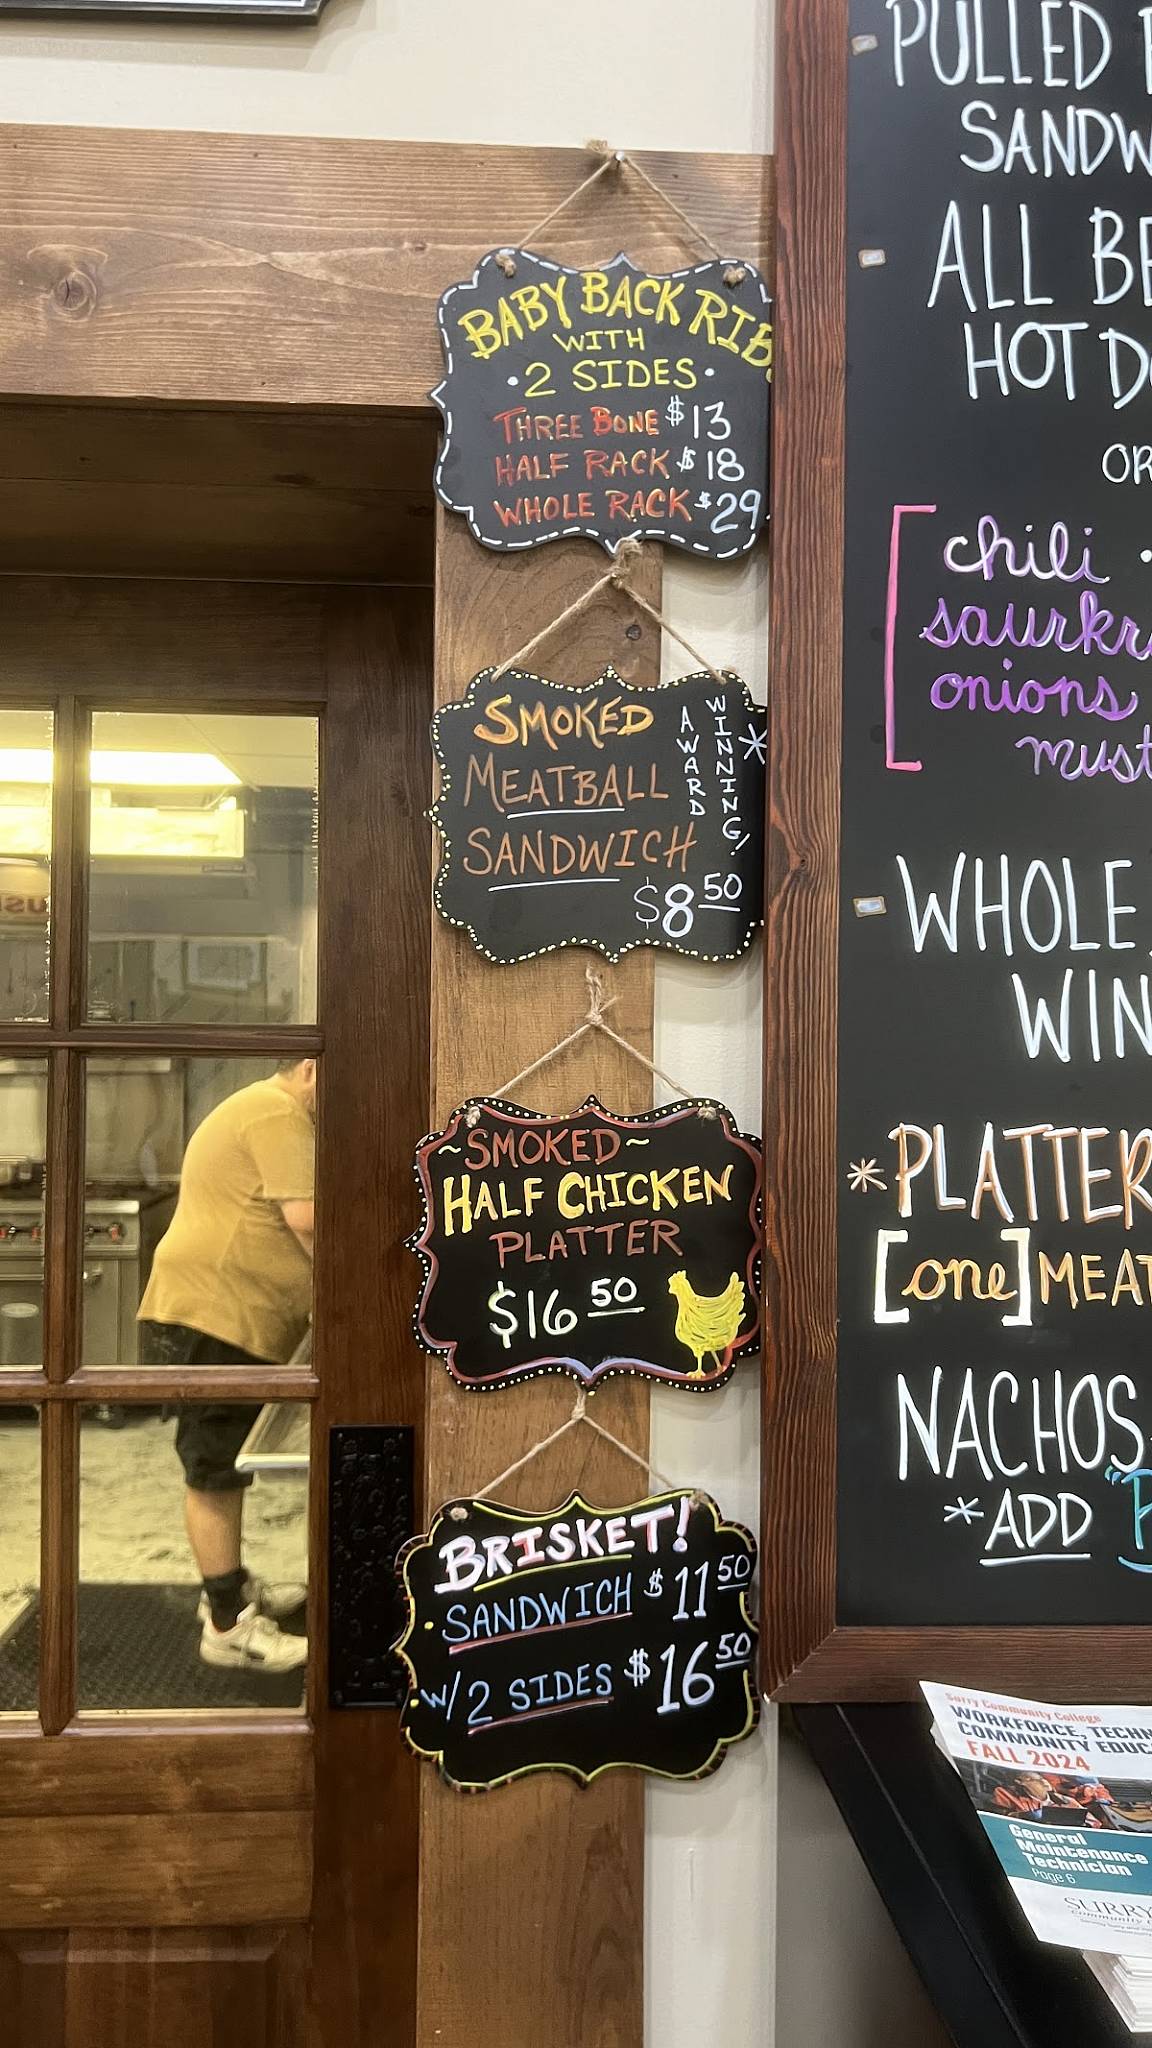 BABY BACK RIBS
WITH
• 2 SIDES •
THREE BONE $13
HALF RACK $18
WHOLE RACK $29
SMOKED
MEATBALL
SANDWICH
AWARD
WINNING! *
$8 50
~SMOKED~
HALF CHICKEN
PLATTER
$16 50
BRISKET!
• SANDWICH $11 50
• W/2 SIDES $16 50
PULLED
SANDW
ALL BE
HOT DO
OR
chili •
saurkr
onions
must
WHOLE
WIN
*PLATTER
[one] MEAT
NACHOS
*ADD
Surry Community College
WORKFORCE, TECHN
COMMUNITY EDUC
FALL 2024
General
Maintenance
Technician
Page 6
SURRY